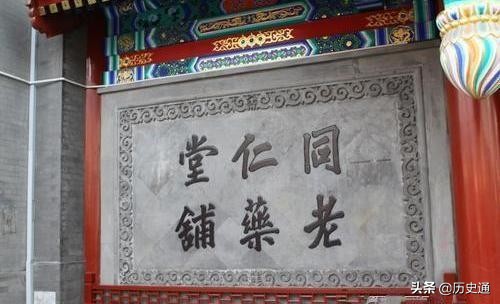 同仁堂
老藥舖
头条 @历史通